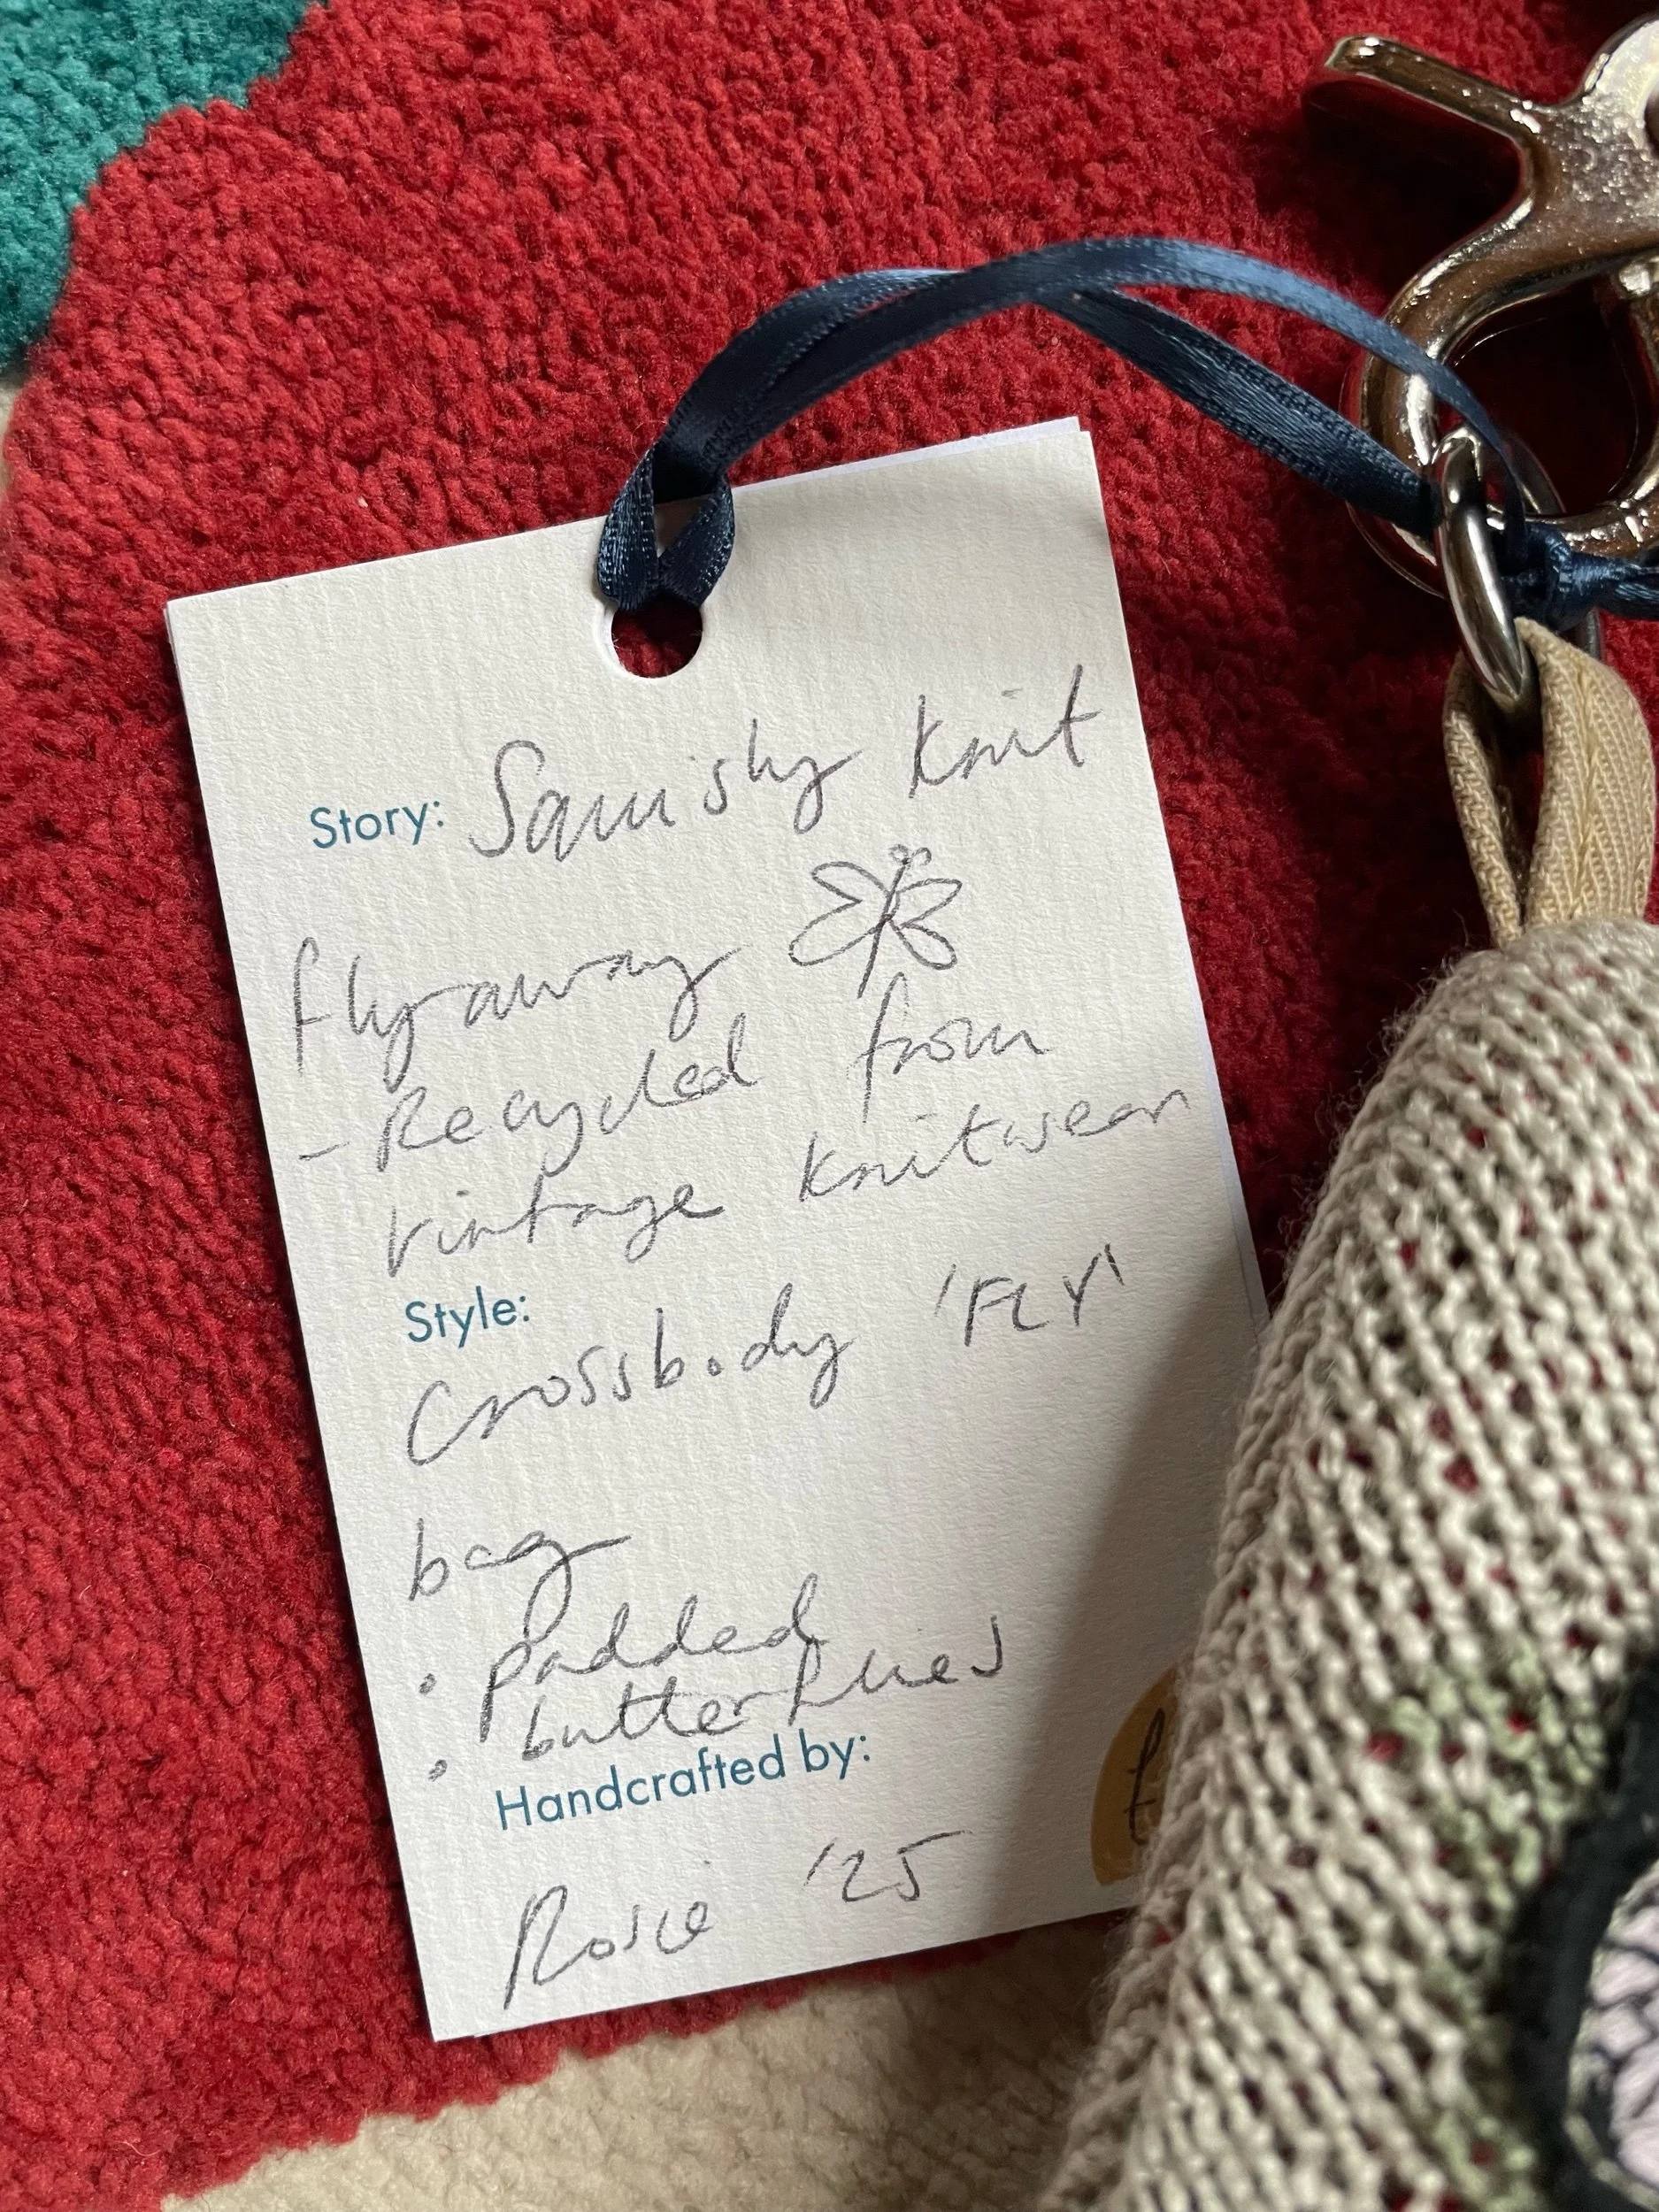 Story: Squishy knit
flyaway
- Recycled from
vintage knitwear
Style:
Crossbody 'FLY'
bag
• padded
• butterflies
Handcrafted by:
Rosie '25